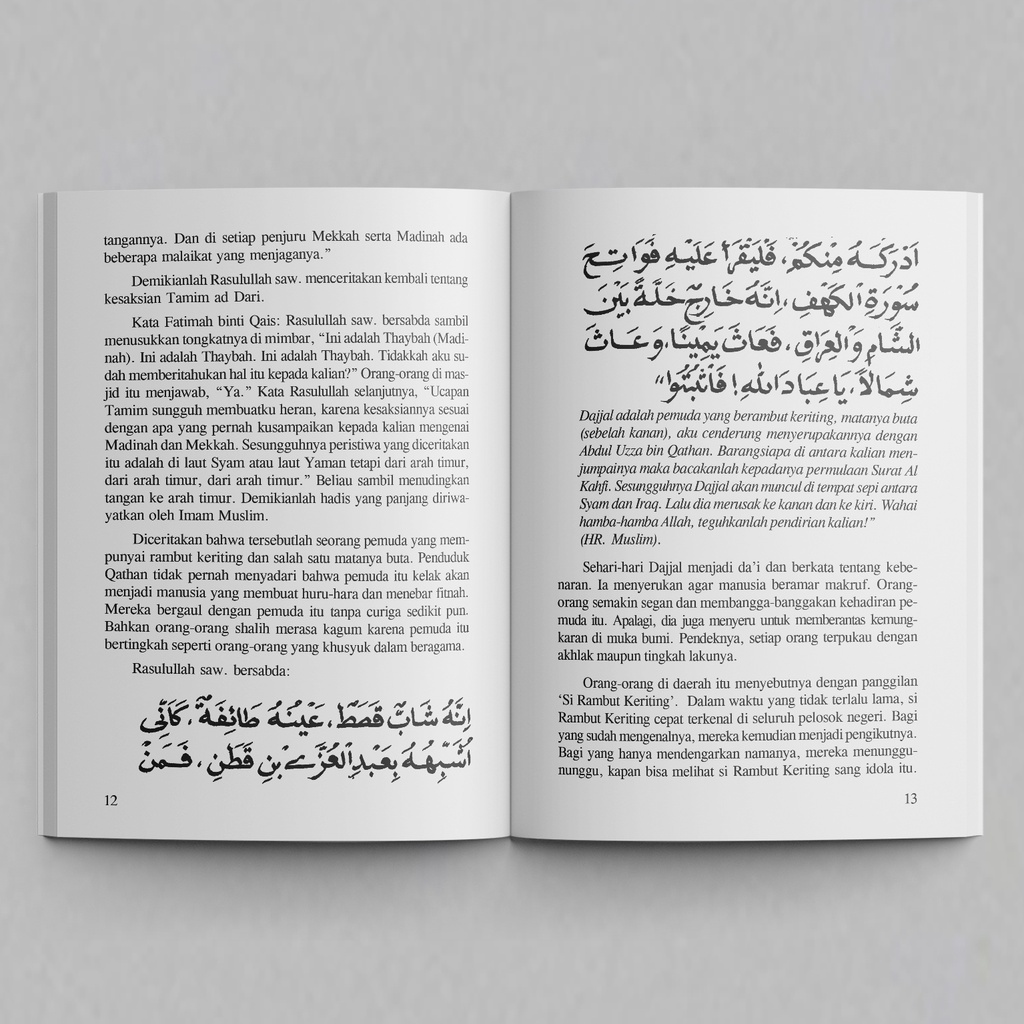 tangannya. Dan di setiap penjuru Mekkah serta Madinah ada
beberapa malaikat yang menjaganya.”
Demikianlah Rasulullah saw. menceritakan kembali tentang
kesaksian Tamim ad Dari.
Kata Fatimah binti Qais: Rasulullah saw. bersabda sambil
menusukkan tongkatnya di mimbar, “Ini adalah Thaybah (Madi-
nah). Ini adalah Thaybah. Ini adalah Thaybah. Tidakkah aku su-
dah memberitahukan hal itu kepada kalian?” Orang-orang di mas-
jid itu menjawab, “Ya.” Kata Rasulullah selanjutnya, “Ucapan
Tamim sungguh membuatku heran, karena kesaksiannya sesuai
dengan apa yang pernah kusampaikan kepada kalian mengenai
Madinah dan Mekkah. Sesungguhnya peristiwa yang diceritakan
itu adalah di laut Syam atau laut Yaman tetapi dari arah timur,
dari arah timur, dari arah timur.” Beliau sambil menudingkan
tangan ke arah timur. Demikianlah hadis yang panjang diriwa-
yatkan oleh Imam Muslim.
Diceritakan bahwa tersebutlah seorang pemuda yang mem-
punyai rambut keriting dan salah satu matanya buta. Penduduk
Qathan tidak pernah menyadari bahwa pemuda itu kelak akan
menjadi manusia yang membuat huru-hara dan menebar fitnah.
Mereka bergaul dengan pemuda itu tanpa curiga sedikit pun.
Bahkan orang-orang shalih merasa kagum karena pemuda itu
bertingkah seperti orang-orang yang khusyuk dalam beragama.
Rasulullah saw. bersabda:
اِنَّهُ شَابٌّ قَطَطٌ، عَيْنُهُ طَائِفَةٌ، كَأَنِّى
اُشَبِّهُهُ بِعَبْدِالْعُزَّى بْنِ قَطَنٍ، فَمَنْ
12
اَدْرَكَهُ مِنْكُمْ، فَلْيَقْرَأْ عَلَيْهِ فَوَاتِحَ
سُوْرَةِ الْكَهْفِ، اِنَّهُ خَارِجٌ خَلَّةً بَيْنَ
الشَّامِ وَالْعِرَاقِ، فَعَاثَ يَمِيْنًا، وَعَاثَ
شِمَالًا، يَا عِبَادَ اللهِ! فَاثْبُتُوا”
Dajjal adalah pemuda yang berambut keriting, matanya buta
(sebelah kanan), aku cenderung menyerupakannya dengan
Abdul Uzza bin Qathan. Barangsiapa di antara kalian men-
jumpainya maka bacakanlah kepadanya permulaan Surat Al
Kahfi. Sesungguhnya Dajjal akan muncul di tempat sepi antara
Syam dan Iraq. Lalu dia merusak ke kanan dan ke kiri. Wahai
hamba-hamba Allah, teguhkanlah pendirian kalian!”
(HR. Muslim).
Sehari-hari Dajjal menjadi da’i dan berkata tentang kebe-
naran. Ia menyerukan agar manusia beramar makruf. Orang-
orang semakin segan dan membangga-banggakan kehadiran pe-
muda itu. Apalagi, dia juga menyeru untuk memberantas kemung-
karan di muka bumi. Pendeknya, setiap orang terpukau dengan
akhlak maupun tingkah lakunya.
Orang-orang di daerah itu menyebutnya dengan panggilan
‘Si Rambut Keriting’. Dalam waktu yang tidak terlalu lama, si
Rambut Keriting cepat terkenal di seluruh pelosok negeri. Bagi
yang sudah mengenalnya, mereka kemudian menjadi pengikutnya.
Bagi yang hanya mendengarkan namanya, mereka menunggu-
nunggu, kapan bisa melihat si Rambut Keriting sang idola itu.
13